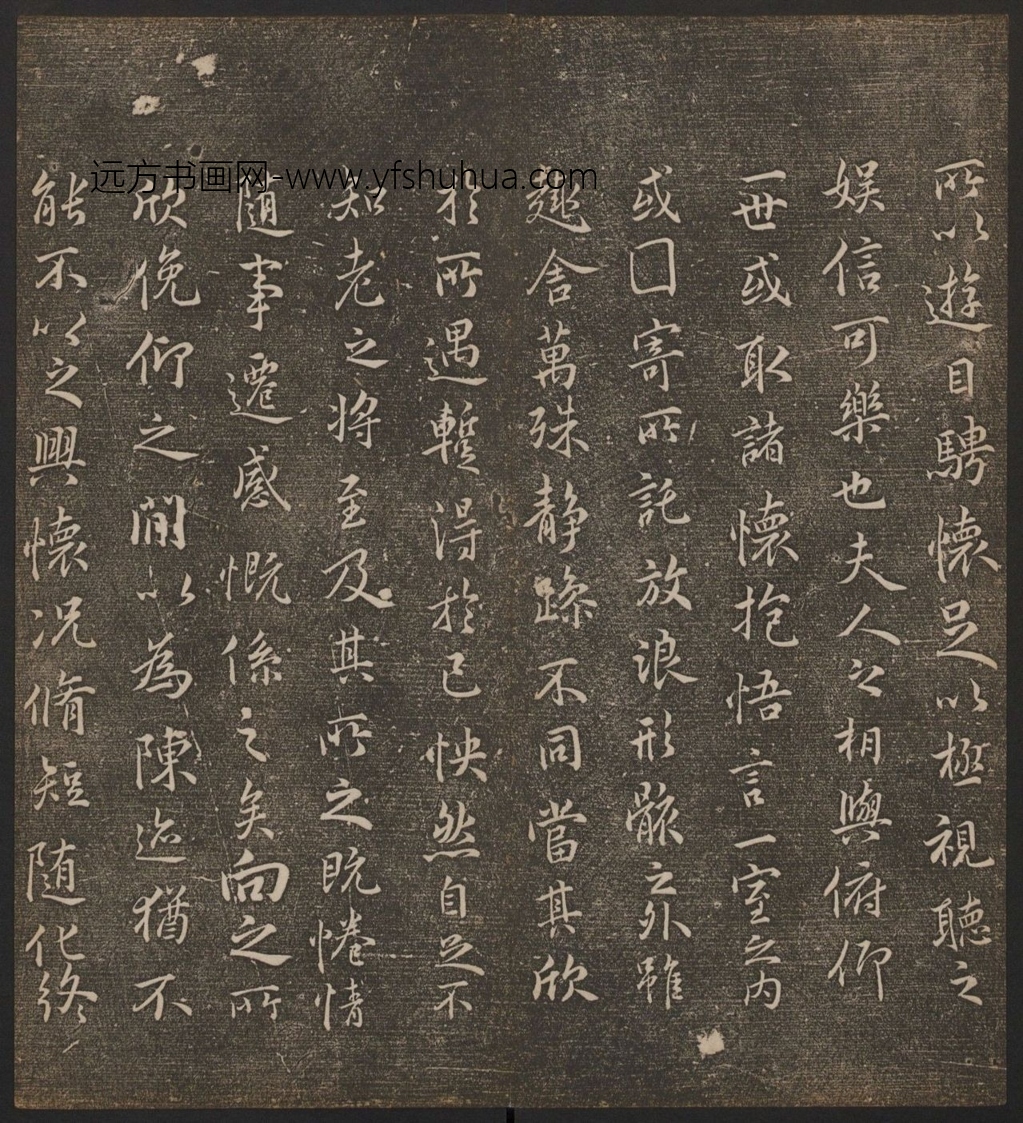 所以遊目騁懷足以極視聽之
娱信可樂也夫人之相與俯仰
一世或取諸懷抱悟言一室之内
或囗寄所託放浪形骸之外雖
趣舍萬殊静躁不同當其欣
於所遇蹔得於己怏然自足不
知老之將至及其所之既惓情
隨事遷感慨係之矣向之所
欣俛仰之間以為陳迹猶不
能不以之興懷況脩短隨化終
远方书画网-www.yfshuhua.com